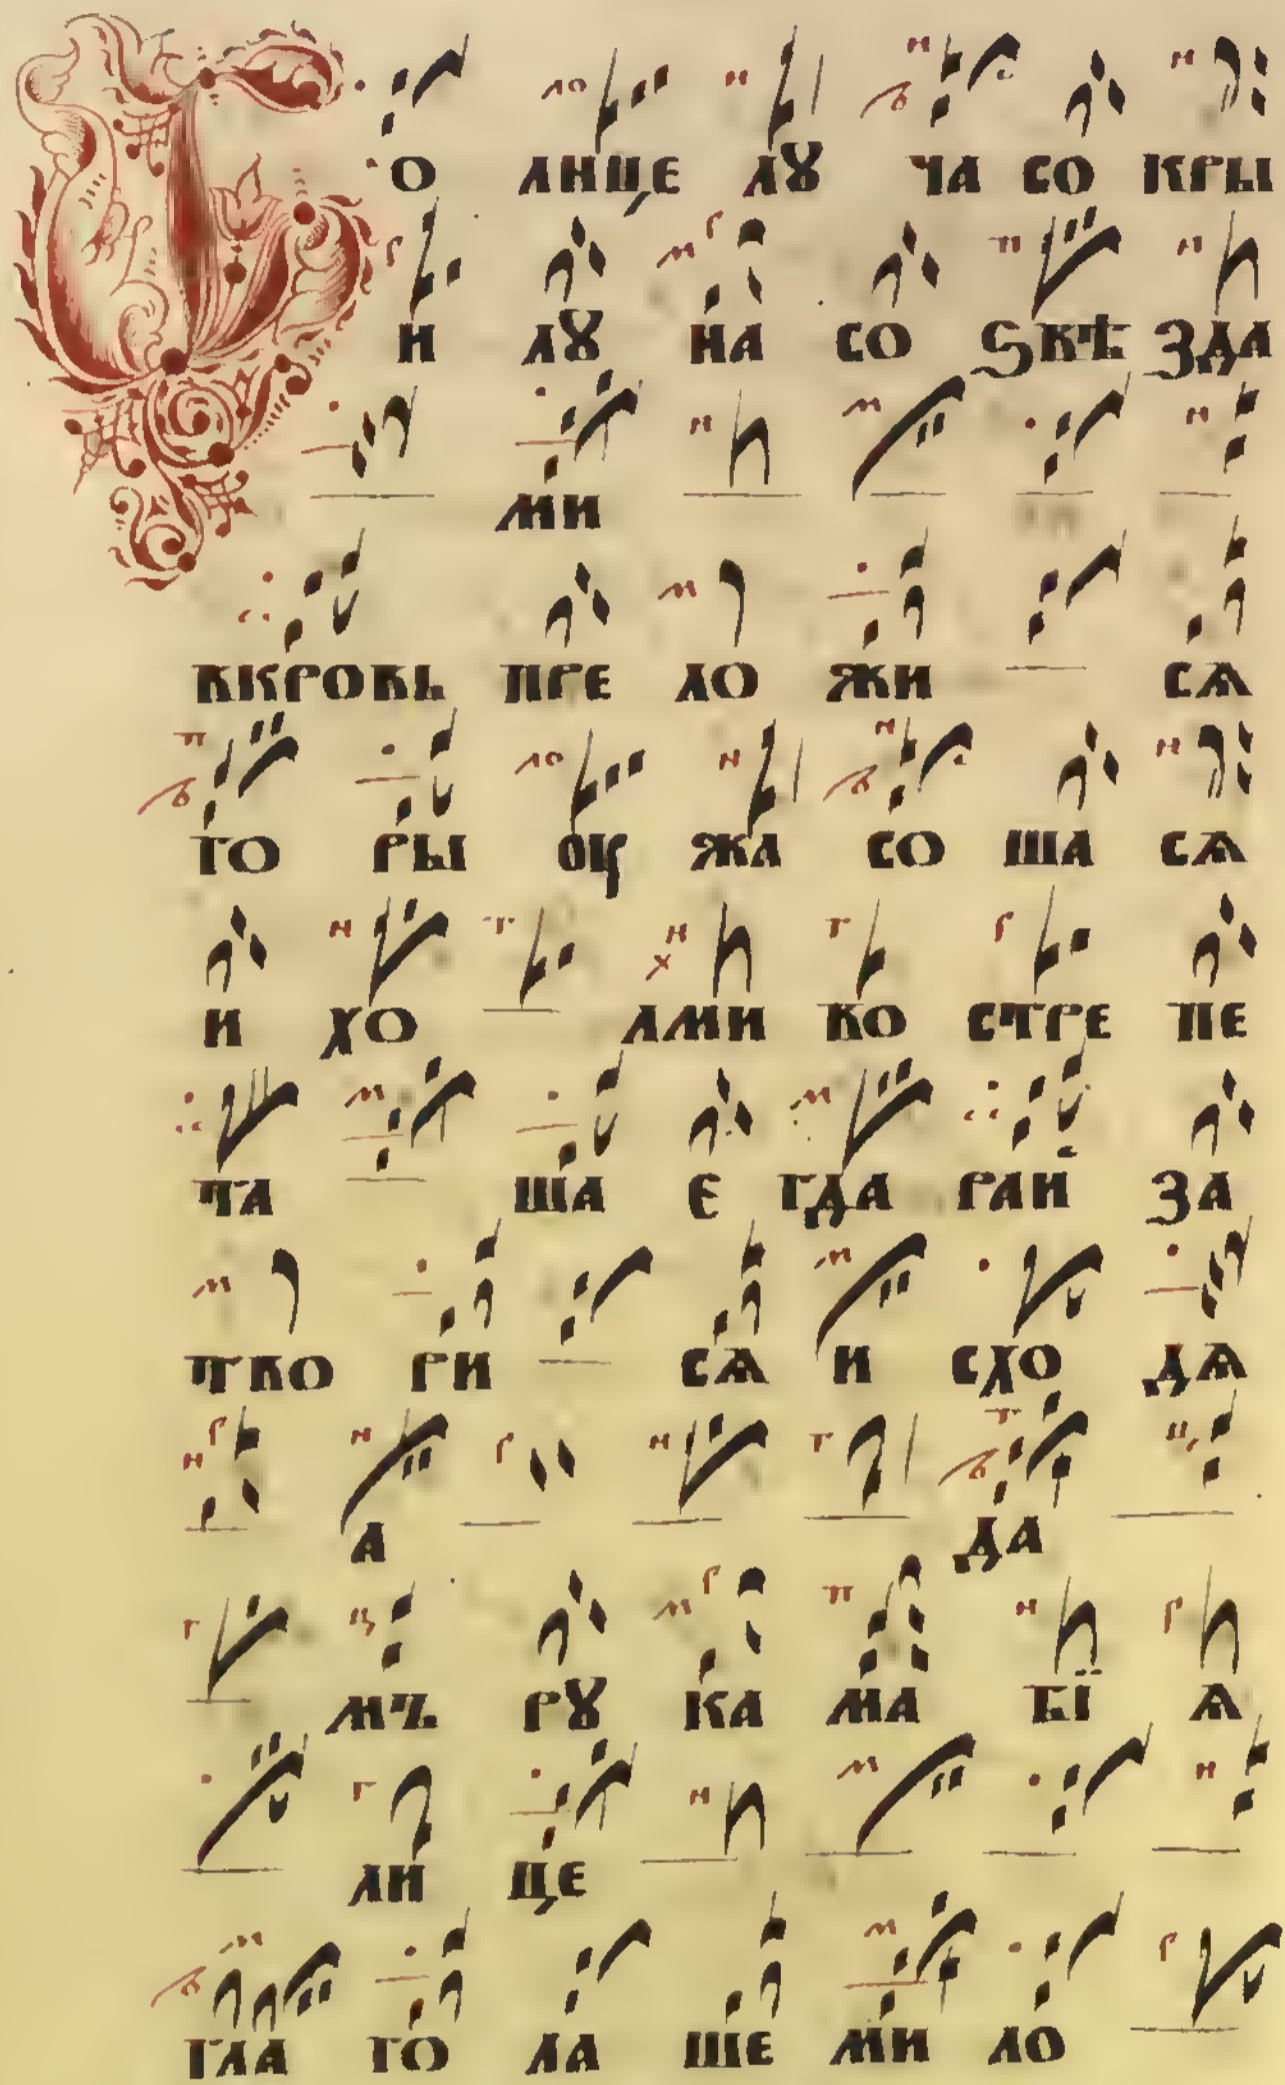 Со лнце лꙋ ча со кры
и лꙋ на со ѕвѣ зда
ми
вкровь пре ло жи сѧ
го ры оу жа со ша сѧ
и хо лми во стре пе
та ша е гда рай за
тво ри сѧ и схо дѧ
а да
мъ рꙋ ка ма бїѧ
ли це
гла го ла ше ми ло